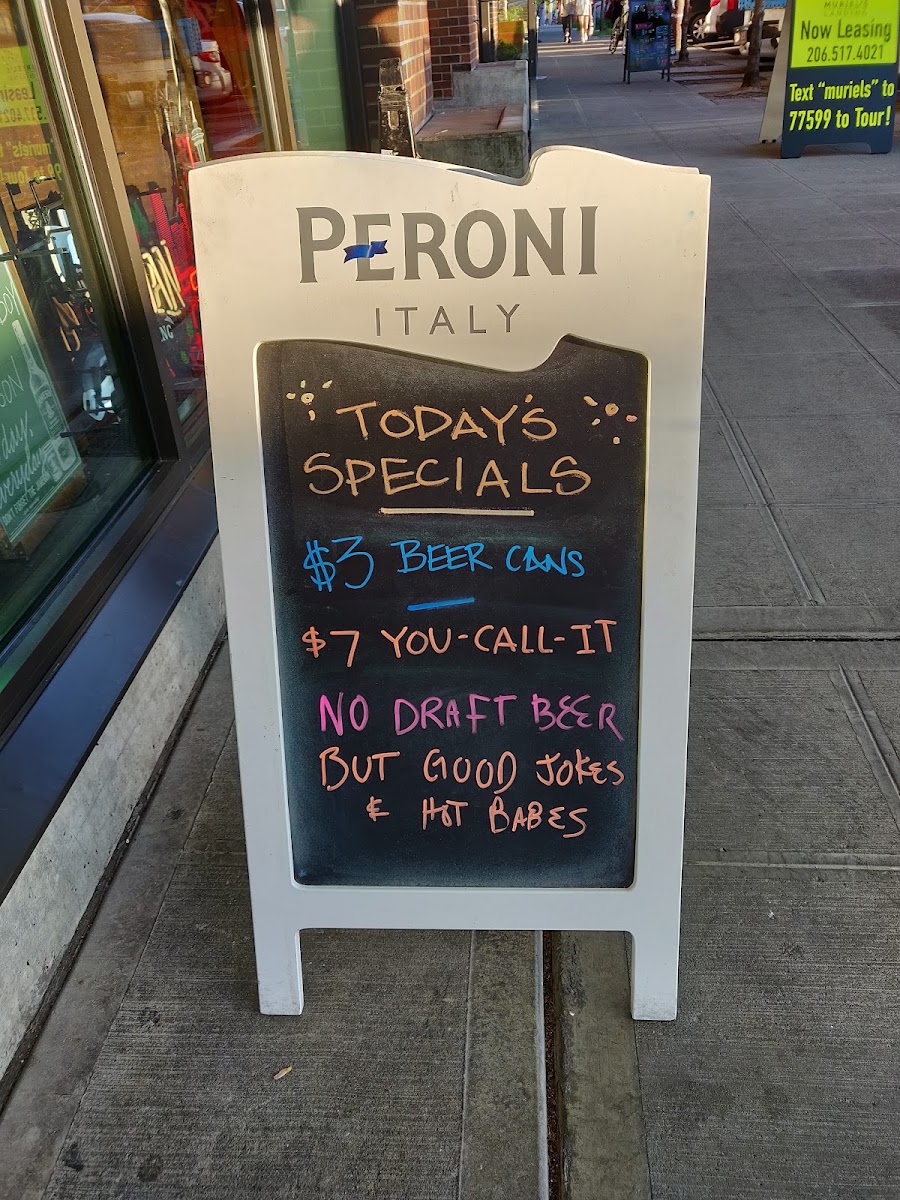 PERONI
ITALY
TODAY'S
SPECIALS
$3 BEER CANS
$7 YOU-CALL-IT
NO DRAFT BEER
BUT GOOD JOKES
& HOT BABES
MURIEL'S
LANDING
Now Leasing
206.517.4021
Text "muriels" to
77599 to Tour!